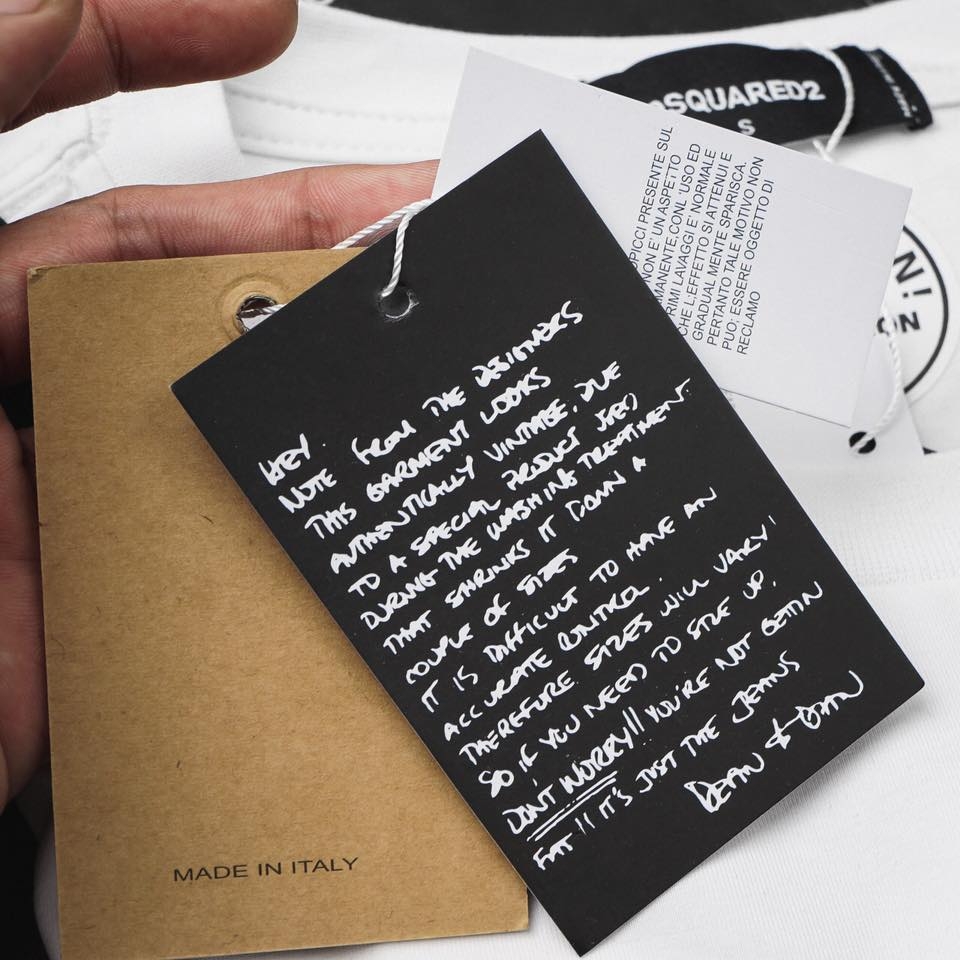 DSQUARED2
S
OPICCI PRESENTE SUL
NON E' UN ASPETTO
MANENTE, CON L 'USO ED
RIMI LAVAGGI E' NORMALE
CHE L;EFFETTO SI ATTENUI E
GRADUAL MENTE SPARISCA.
PERTANTO TALE MOTIVO NON
PUO; ESSERE OGGETTO DI
RECLAMO
N!
ON
HEY
NOTE FROM THE DESIGNERS
THIS GARMENT LOOKS
AUTHENTICALLY VINTAGE, DUE
TO A SPECIAL PRODUCT USED
DURING THE WASHING TREATMENT.
THAT SHRINKS IT DOWN A
COUPLE OF SIZES
IT IS DIFFICULT TO HAVE AN
ACCURATE CONTROL.
THEREFORE SIZES WILL VARY!
SO IF YOU NEED TO SIZE UP,
DON'T WORRY!! YOU'RE NOT GETTIN
FAT!! IT'S JUST THE JEANS
DEAN & DAN
MADE IN ITALY